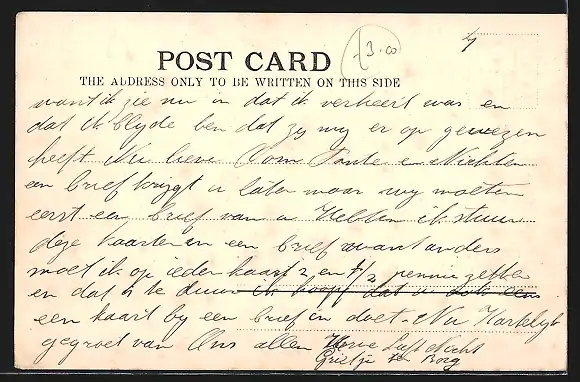 4
£3.00
POST CARD
THE ADDRESS ONLY TO BE WRITTEN ON THIS SIDE
want ik zie nu in dat ik verkeert was en
dat ik blijde ben dat zij mij er op gewezen
heeft Nu lieve Oom Tante en Nichten
een brief krijgt u later maar wij moeten
eerst een brief van u Hebben ik stuur
deze kaarten in een brief want anders
moet ik op ieder kaart 2 en 1/2 pennie zetten
en dat is te duur ik hoop dat u ook eens
een kaart bij een brief in doet. Nu Hartelijk
gegroet van Ons allen Uwe Liefh Nicht
Grietje ten Borg